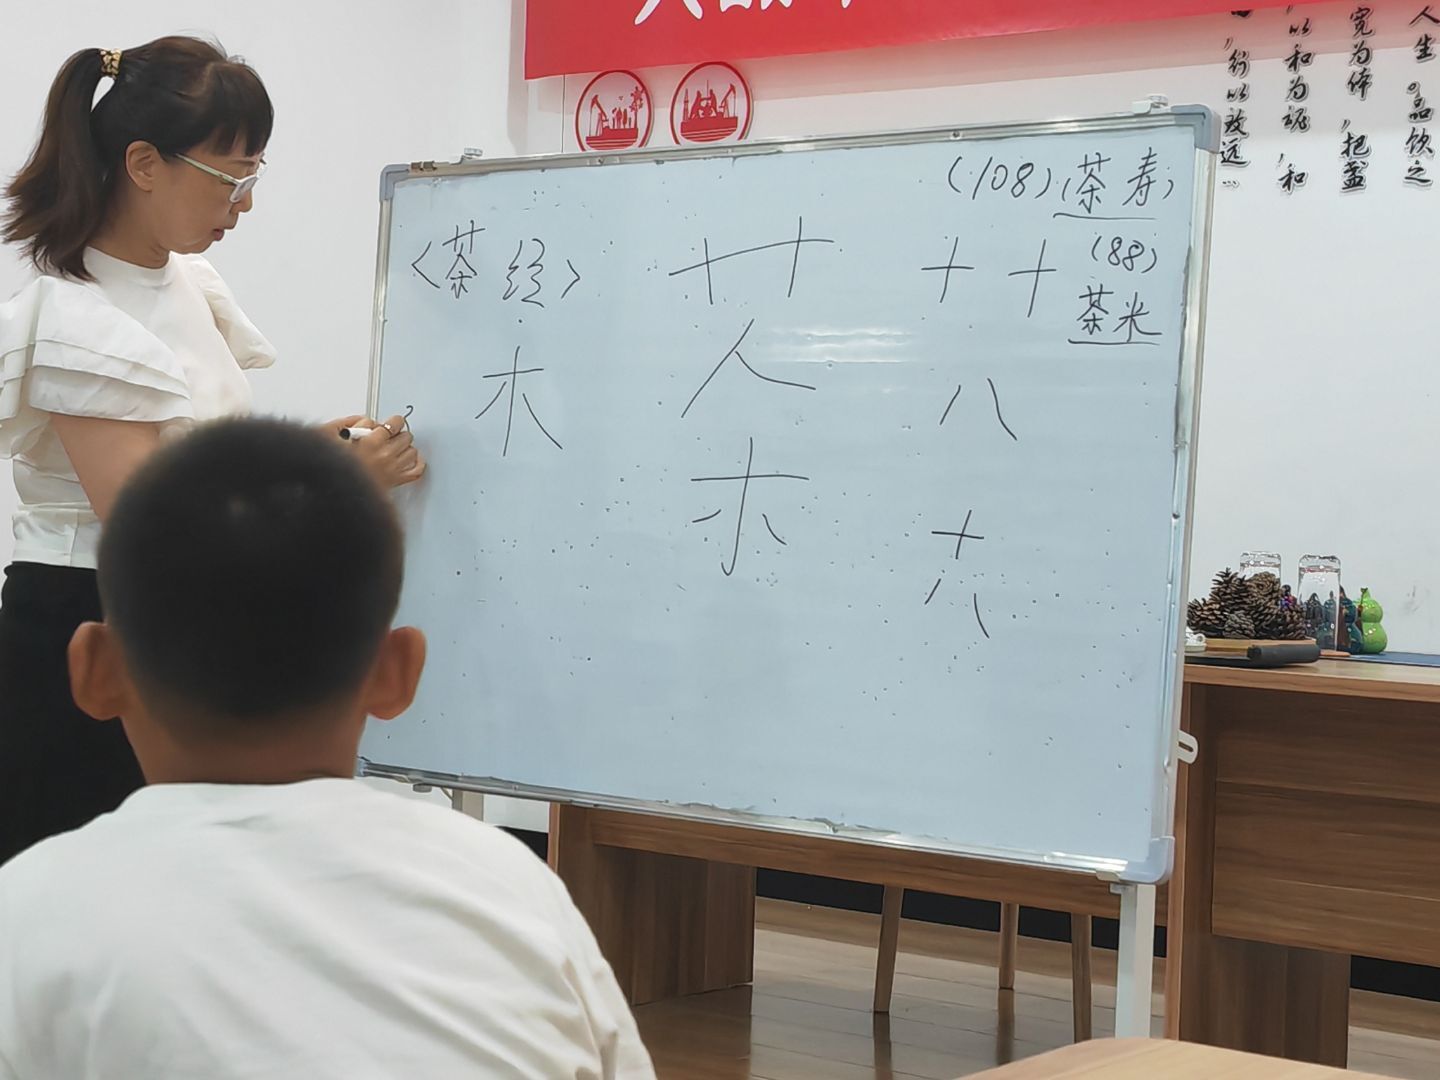 (108)(茶寿)
〈茶经〉
艹
十十
(88)
茶米
木
人
八
朩
十
八
人生。品饮之
宽为体,把盏
,以和为魂,和
,行以致远…